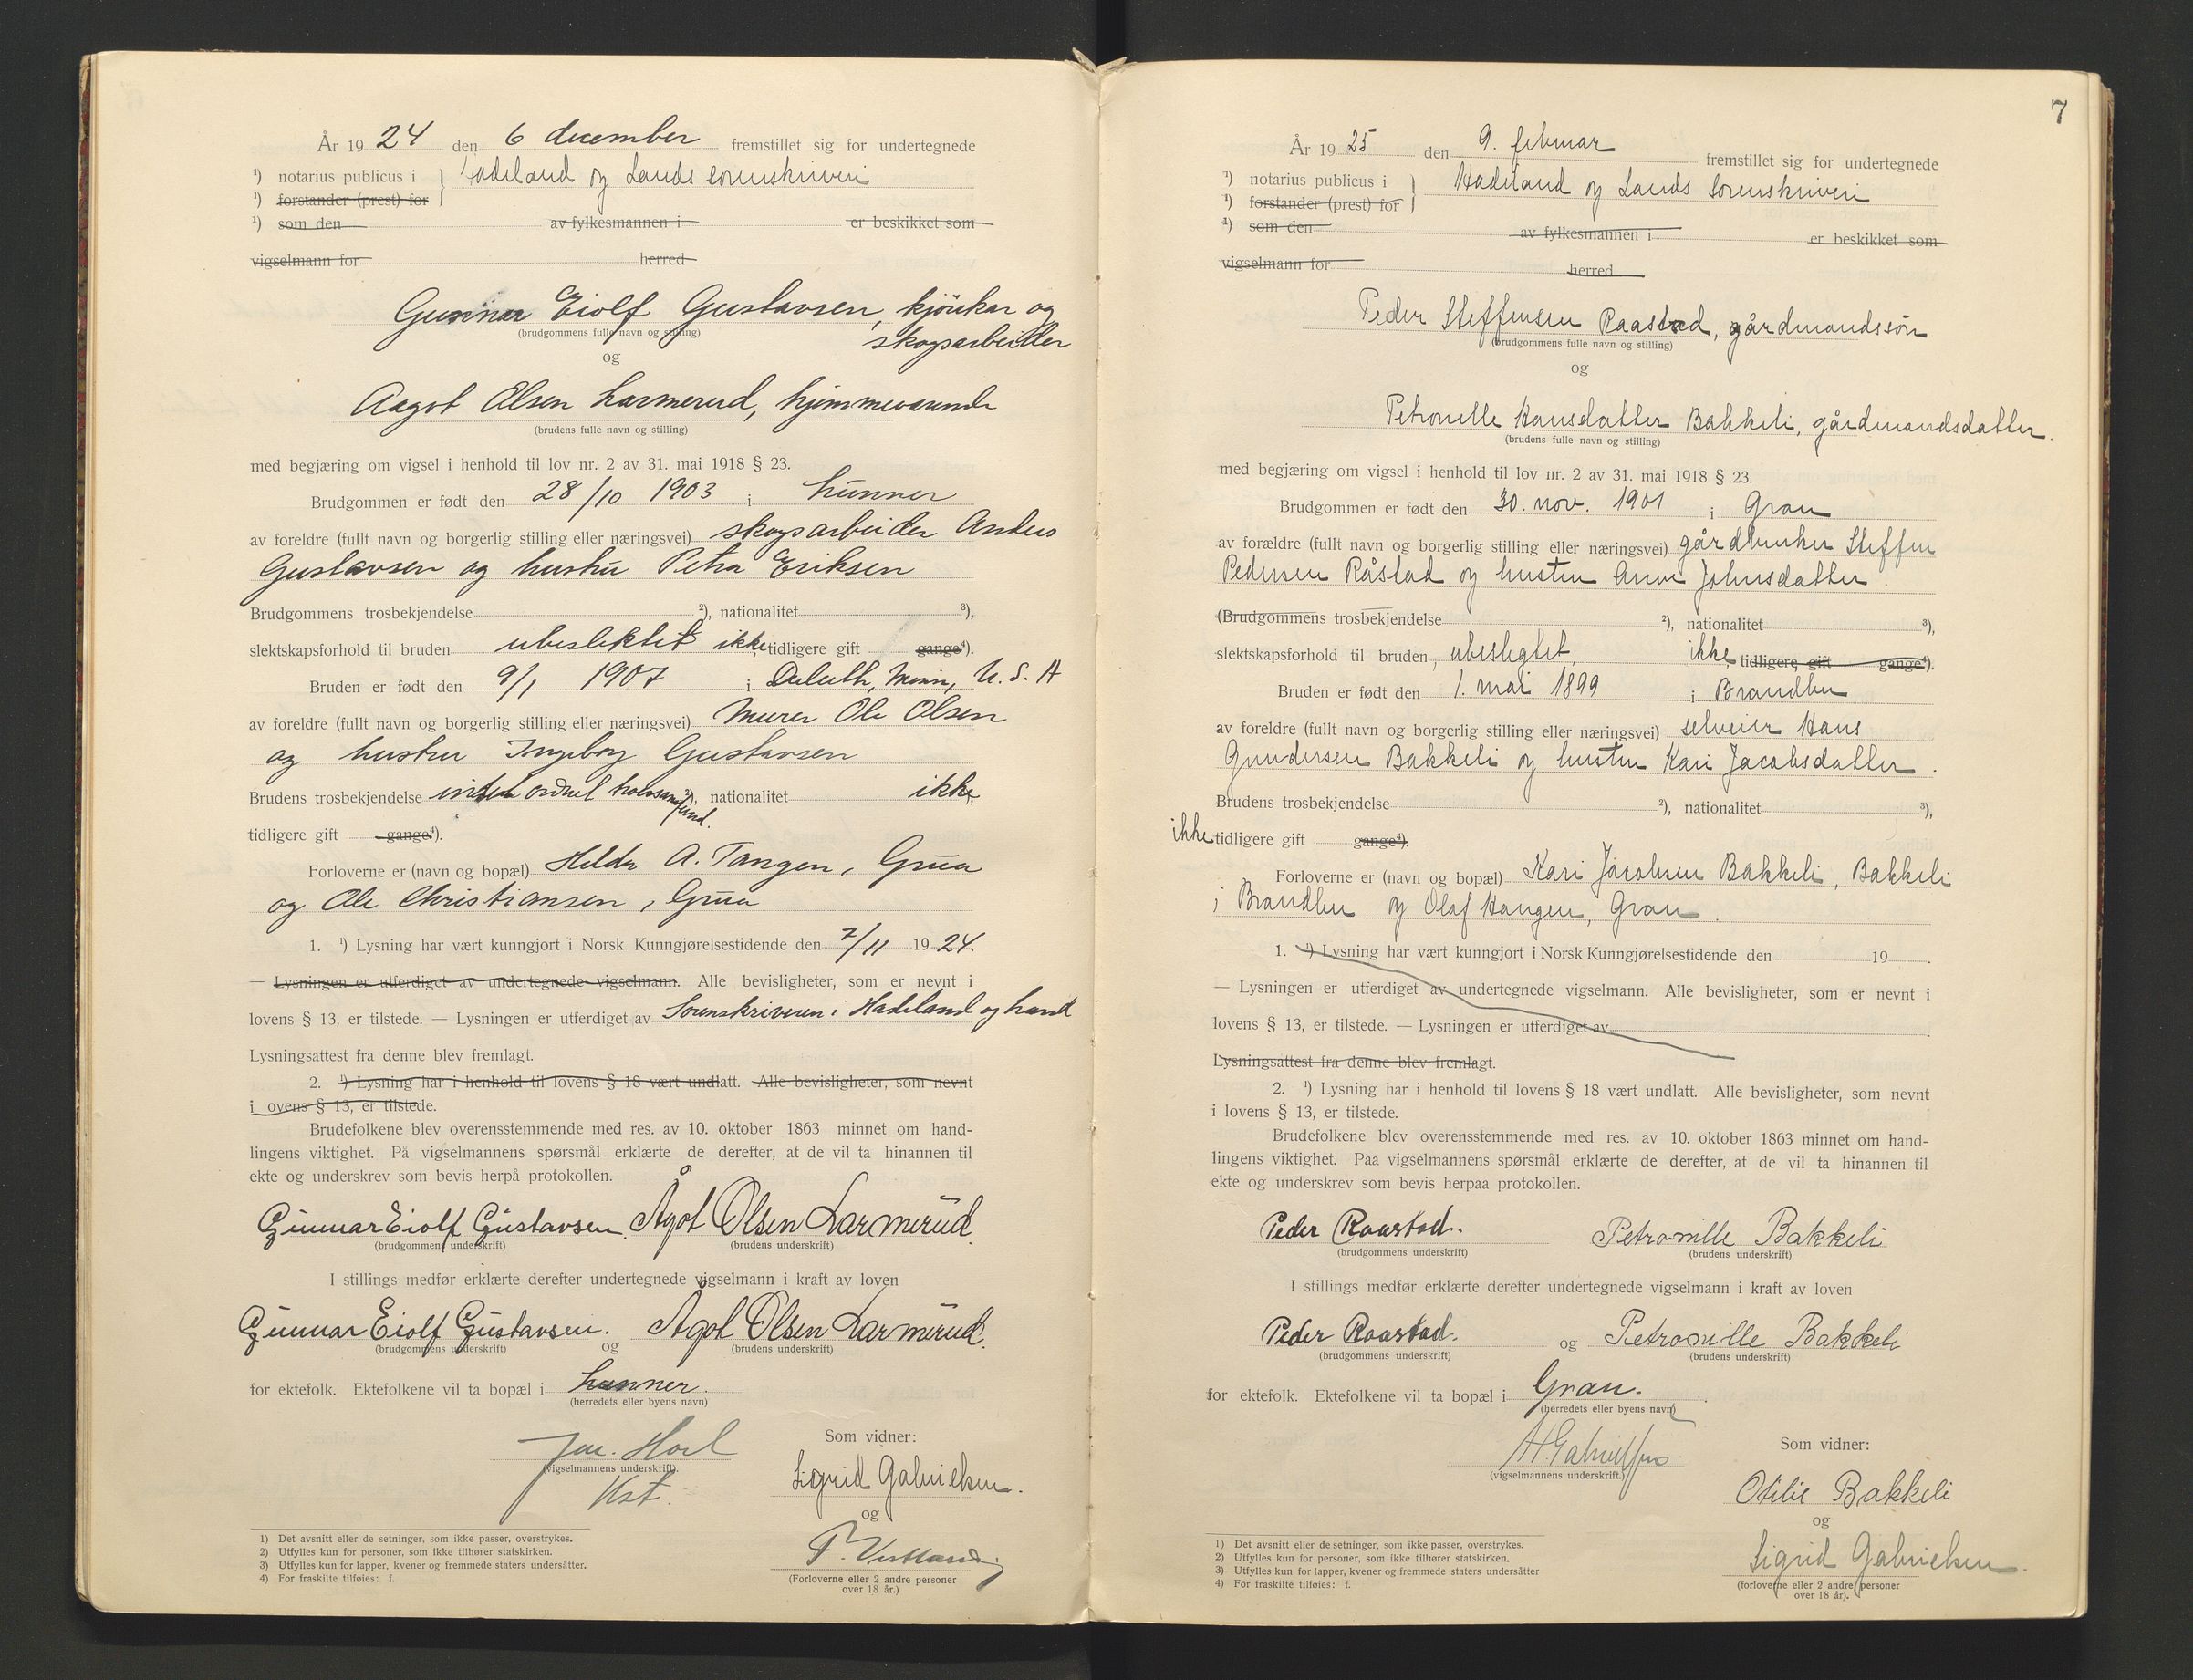 År 1924 den 6 december fremstillet sig for undertegnede
¹) notarius publicus i Hadeland og Lands sorenskriveri
¹) forstander (prest) for
¹) som den av fylkesmannen i er beskikket som
vigselmann for herred
Gunnar Eiolf Gustavsen, kjörekar og
skogsarbeider
(brudgommens fulle navn og stilling)
og
Aagot Olsen Larmerud, hjemmeværende
(brudens fulle navn og stilling)
med begjæring om vigsel i henhold til lov nr. 2 av 31. mai 1918 § 23.
Brudgommen er født den 28/10 1903 i Lunner
av foreldre (fullt navn og borgerlig stilling eller næringsvei) skogsarbeider Anders
Gustavsen og hustru Petra Eriksen
Brudgommens trosbekjendelse ²), nationalitet ³),
slektskapsforhold til bruden ubeslektet ikke tidligere gift gange⁴).
Bruden er født den 9/1 1907 i Duluth, Minn, U. S. A
av foreldre (fullt navn og borgerlig stilling eller næringsvei) murer Ole Olsen
og hustru Ingeborg Gustavsen
Brudens trosbekjendelse intet ordnet trossamfund. ²), nationalitet ikke
tidligere gift gange⁴).
Forloverne er (navn og bopæl) Helda A. Tangen, Grua
og Ole Christiansen, Grua
1. ¹) Lysning har vært kunngjort i Norsk Kunngjørelsestidende den 7/11 1924.
— Lysningen er utferdiget av undertegnede vigselmann. Alle bevisligheter, som er nevnt i
lovens § 13, er tilstede. — Lysningen er utferdiget av Sorenskriveren i Hadeland og Land
Lysningsattest fra denne blev fremlagt.
2. ¹) Lysning har i henhold til lovens § 18 vært undlatt. Alle bevisligheter, som nevnt
i ovens § 13, er tilstede.
Brudefolkene blev overensstemmende med res. av 10. oktober 1863 minnet om hand-
lingens viktighet. På vigselmannens spørsmål erklærte de derefter, at de vil ta hinannen til
ekte og underskrev som bevis herpå protokollen.
Gunnar Eiolf Gustavsen. Ågot Olsen Larmerud.
(brudgommens underskrift) (brudens underskrift)
I stillings medfør erklærte derefter undertegnede vigselmann i kraft av loven
Gunnar Eiolf Gustavsen. og Ågot Olsen Larmerud.
(brudgommens underskrift) (brudens underskrift)
for ektefolk. Ektefolkene vil ta bopæl i Lunner.
(herredets eller byens navn)
(vigselmannens underskrift).
Kst.
Som vidner:
Sigrid Gabrielsen.
og
(Forloverne eller 2 andre personer
over 18 år.)
1) Det avsnitt eller de setninger, som ikke passer, overstrykes.
2) Utfylles kun for personer, som ikke tilhører statskirken.
3) Utfylles kun for lapper, kvener og fremmede staters undersåtter.
4) For fraskilte tilføies: f.
7
År 1925 den 9. februar fremstillet sig for undertegnede
¹) notarius publicus i Hadeland og Lands Sorenskriveri
¹) forstander (prest) for
¹) som den av fylkesmannen i er beskikket som
vigselmann for herred
Peder Steffensen Raastad, gårdmandssön
(brudgommens fulle navn og stilling)
og
Petronelle Hansdatter Bakkeli, gårdmandsdatter.
(brudens fulle navn og stilling)
med begjæring om vigsel i henhold til lov nr. 2 av 31. mai 1918 § 23.
Brudgommen er født den 30. nov. 1901 i Gran
av forældre (fullt navn og borgerlig stilling eller næringsvei) gårdbruker Steffen
Pedersen Råstad og hustru Anne Johnsdatter.
(Brudgommens trosbekjendelse ²), nationalitet ³),
slektskapsforhold til bruden, ubeslegtet, ikke tidligere gift gange⁴).
Bruden er født den 1. mai 1899 i Brandbu
av foreldre (fullt navn og borgerlig stilling eller næringsvei) selveier Hans
Gundersen Bakkeli og hustru Kari Jacobsdatter.
Brudens trosbekjendelse ²), nationalitet ³),
ikke tidligere gift gange⁴).
Forloverne er (navn og bopæl) Kari Jacobsen Bakkeli, Bakkeli
i Brandbu og Olaf Haugen, Gran.
1. ¹) Lysning har vært kunngjort i Norsk Kunngjørelsestidende den 19 .
— Lysningen er utferdiget av undertegnede vigselmann. Alle bevisligheter, som er nevnt i
lovens § 13, er tilstede. — Lysningen er utferdiget av
Lysningsattest fra denne blev fremlagt.
2. ¹) Lysning har i henhold til lovens § 18 vært undlatt. Alle bevisligheter, som nevnt
i lovens § 13, er tilstede.
Brudefolkene blev overensstemmende med res. av 10. oktober 1863 minnet om hand-
lingens viktighet. Paa vigselmannens spørsmål erklærte de derefter, at de vil ta hinannen til
ekte og underskrev som bevis herpaa protokollen.
Peder Raastad. Petronille Bakkeli
(brudgommens underskrift) (brudens underskrift)
I stillings medfør erklærte derefter undertegnede vigselmann i kraft av loven
Peder Raastad. og Petronille Bakkeli
(brudgommens underskrift) (brudens underskrift)
for ektefolk. Ektefolkene vil ta bopæl i Gran.
(herredets eller byens navn)
(vigselmannens underskrift.)
Som vidner:
Otilie Bakkeli
og
Sigrid Gabrielsen.
(forloverne eller 2 andre personer
over 18 år).
1) Det avsnitt eller de setninger, som ikke passer, overstrykes.
2) Utfylles kun for personer, som ikke tilhører statskirken.
3) Utfylles kun for lapper, kvener og fremmede staters undersåtter
4) For fraskilte tilføies: f.